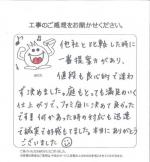 工事のご感想をお聞かせください。
他社と比較した時に
一番提案力があり、
値段も良心的で迷わ
ず決めました。庭もとても満足のいく
仕上がりで、ファミ庭に決めて良かった
です。何かあった時の対応も迅速
で誠実で好感がもてました。本当にありがとう
ございました